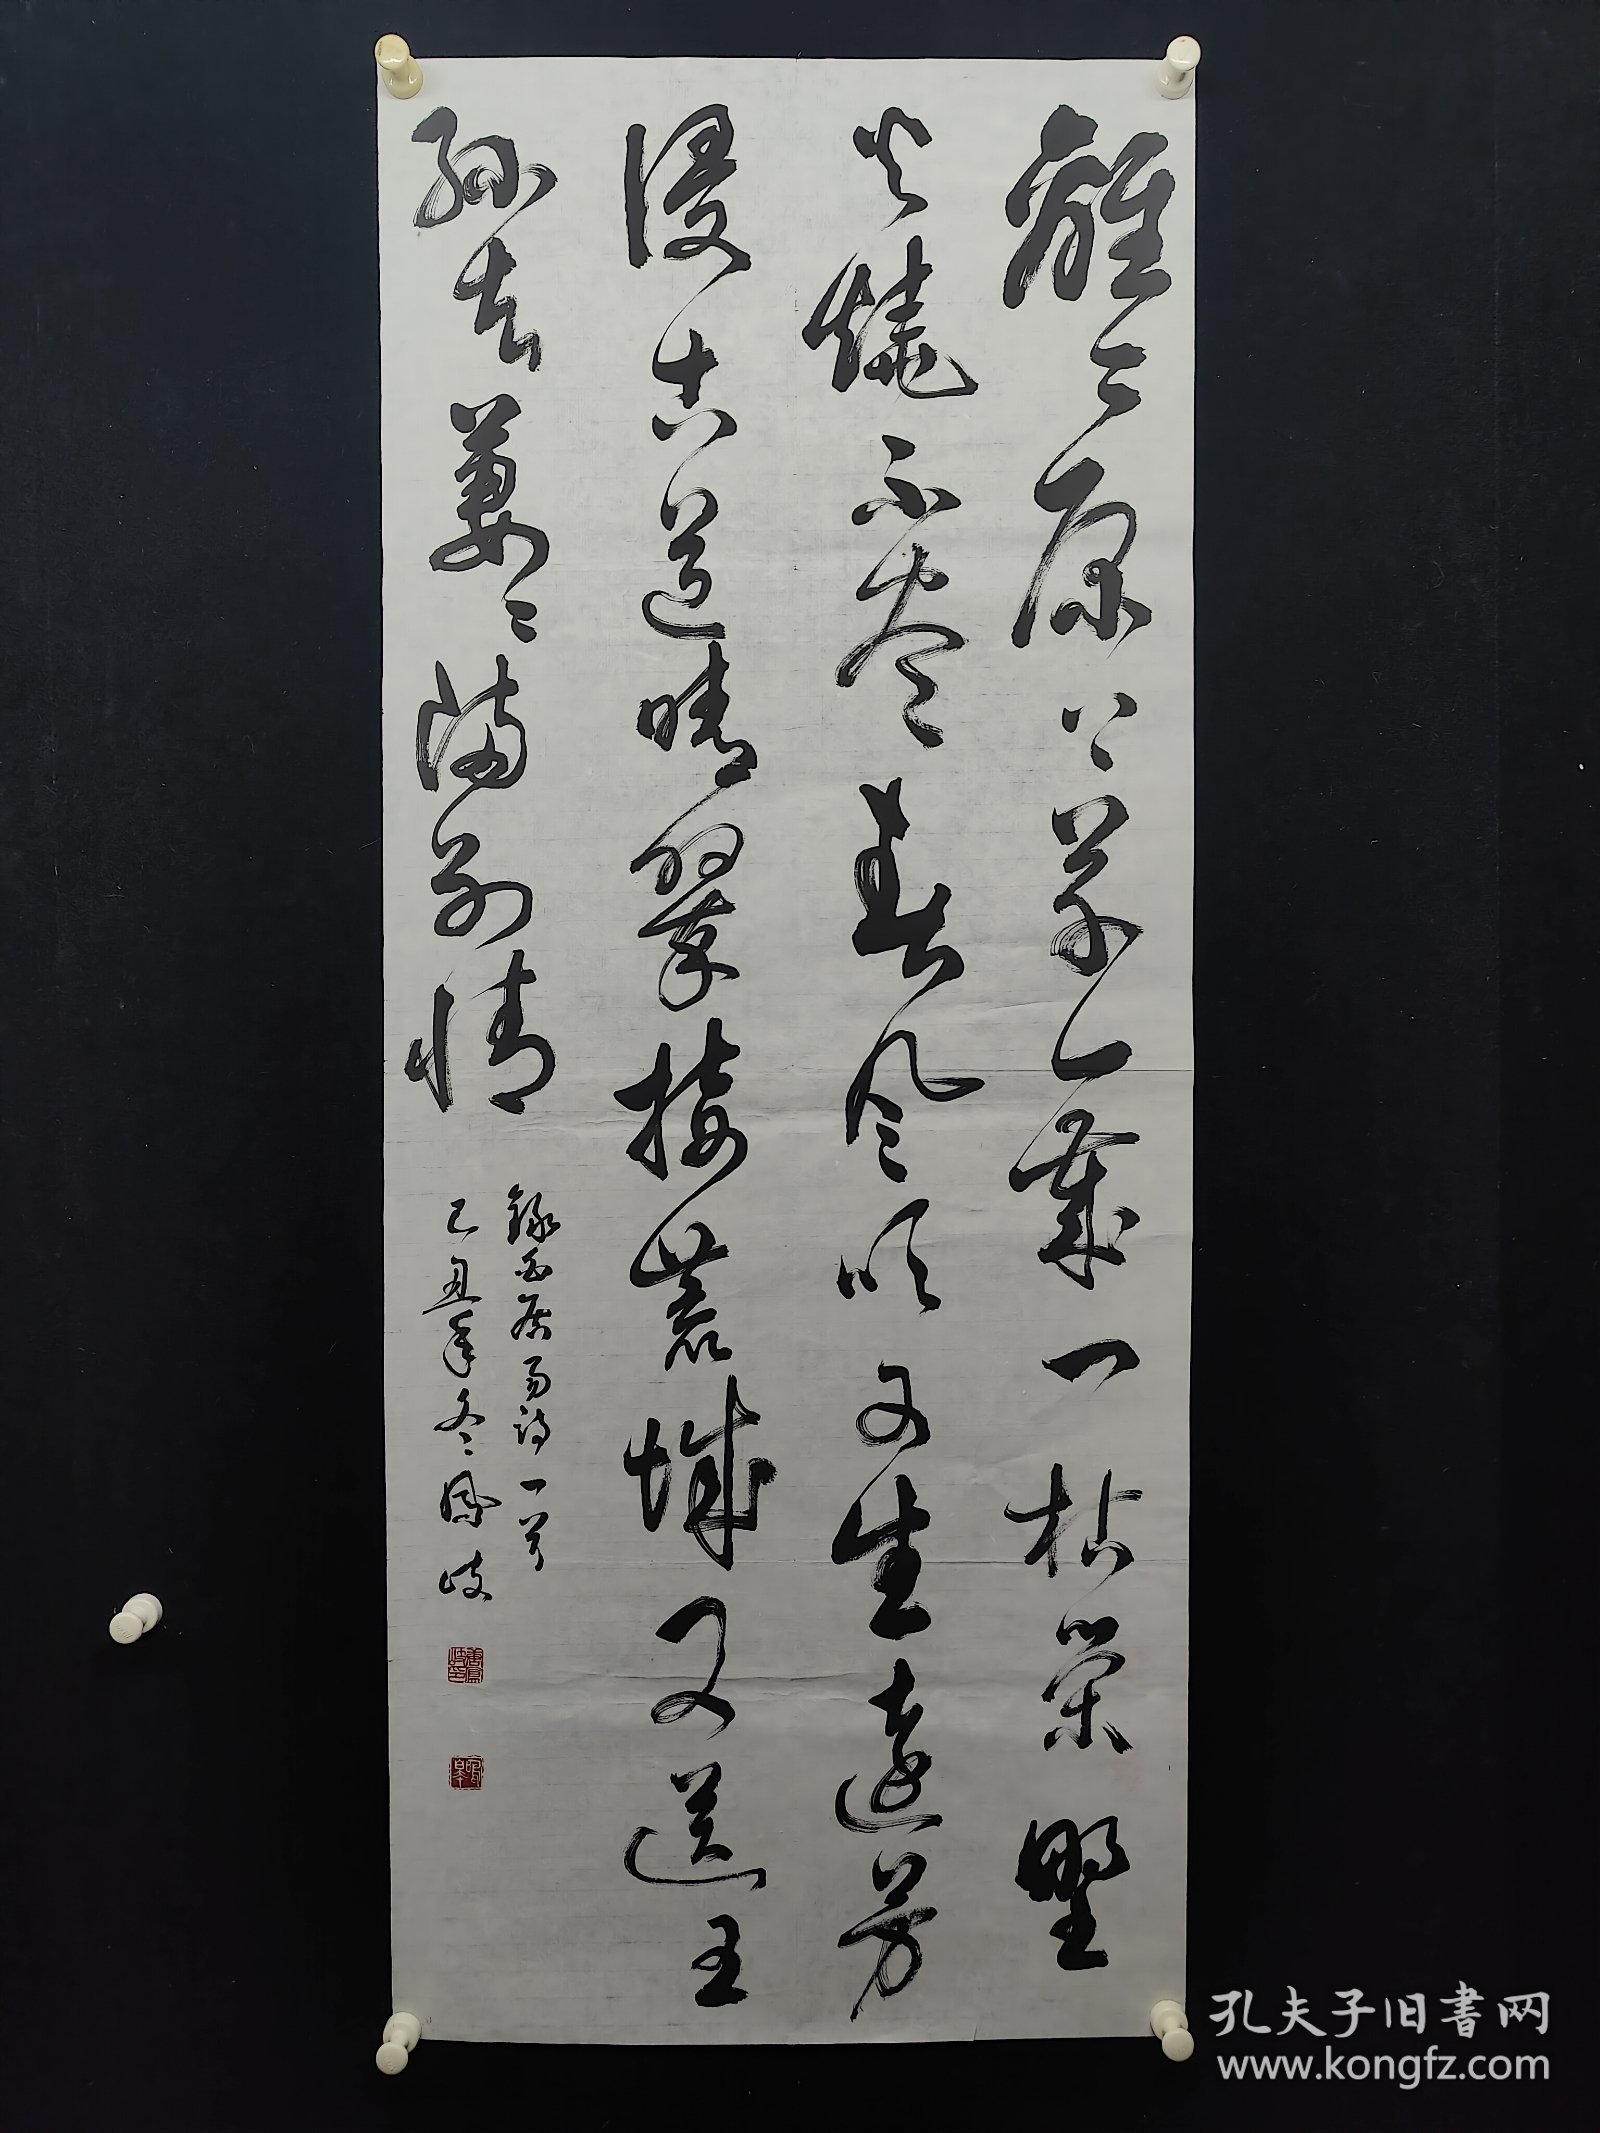 離々原上草一歲一枯榮野
火燒不盡春風吹又生遠芳
侵古道晴翠接荒城又送王
孫去萋々滿別情
錄白居易詩一首
己丑年冬鳳岐
孔夫子旧書网
www.kongfz.com